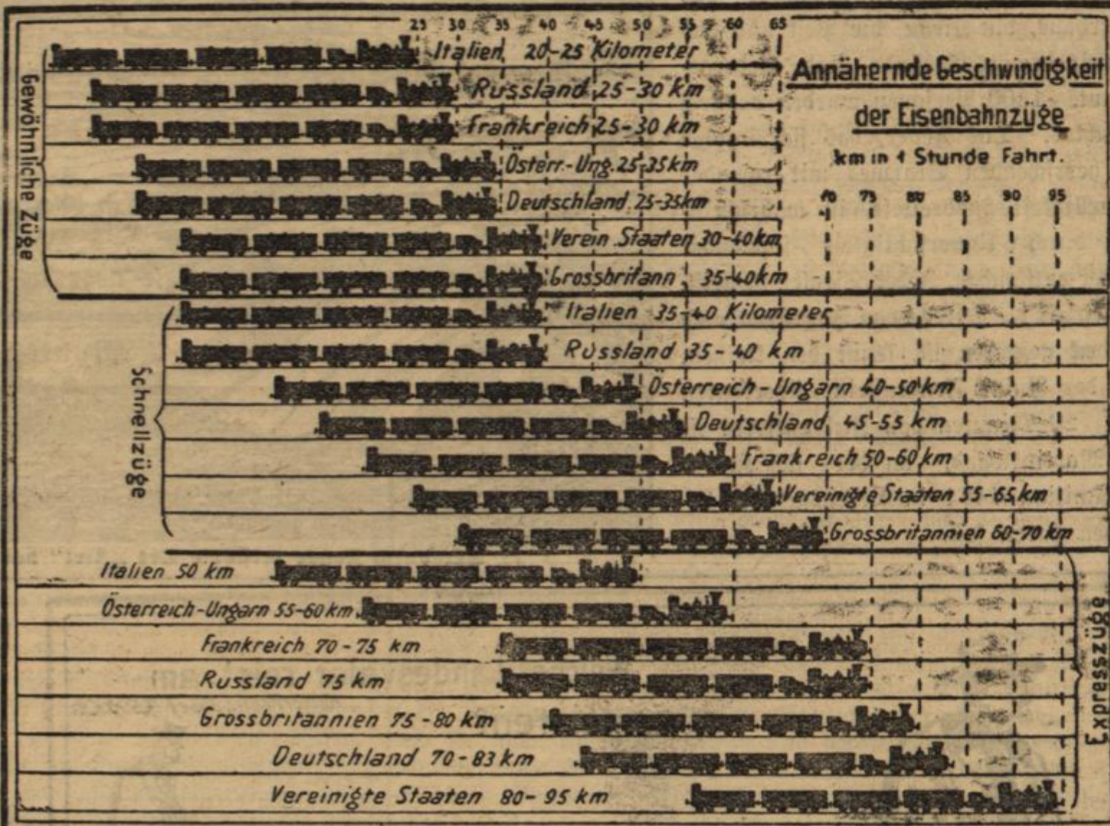 25 30 35 40 45 50 55 60 65
Annähernde Geschwindigkeit
der Eisenbahnzüge
km in 1 Stunde Fahrt.
70 75 80 85 90 95
Gewöhnliche Züge
Italien 20-25 Kilometer
Russland 25-30 km
Frankreich 25-30 km
Österr.-Ung. 25-35km
Deutschland 25-35km
Verein Staaten 30-40km
Grossbritann. 35-40km
Schnellzüge
Italien 35-40 Kilometer
Russland 35-40 km
Österreich-Ungarn 40-50 km
Deutschland 45-55 km
Frankreich 50-60 km
Vereinigte Staaten 55-65 km
Grossbritannien 60-70 km
Expresszüge
Italien 50 km
Österreich-Ungarn 55-60 km
Frankreich 70-75 km
Russland 75 km
Grossbritannien 75-80 km
Deutschland 70-83 km
Vereinigte Staaten 80-95 km